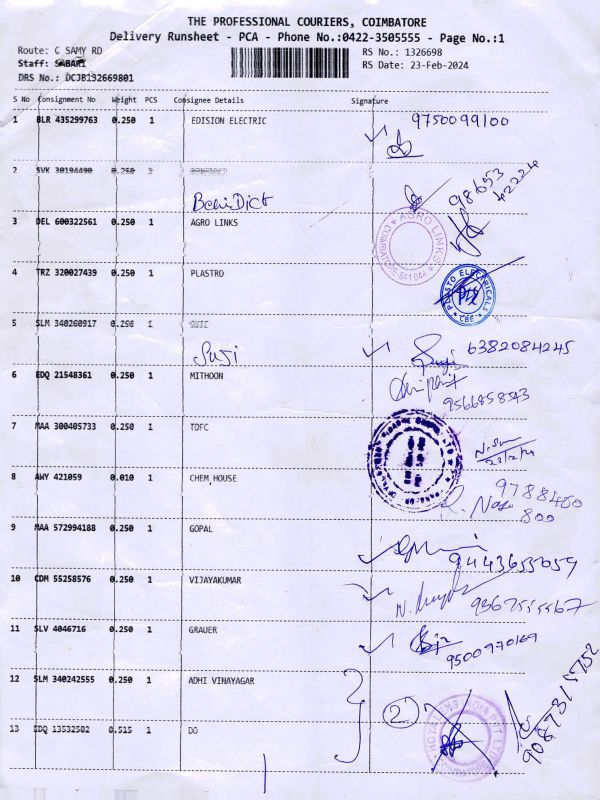 THE PROFESSIONAL COURIERS, COIMBATORE
Delivery Runsheet - PCA - Phone No.:0422-3505555 - Page No.:1
Route: C SAMY RD
RS No.: 1326698
Staff: SABARI
RS Date: 23-Feb-2024
DRS No.: DCJB132669801
S No Consignment No Weight PCS Consignee Details Signature
1 BLR 435299763 0.250 1 EDISION ELECTRIC 9750099100
2 SVK 30194490 0.250
BeniDict
3 DEL 600322561 0.250 1 AGRO LINKS
AGRO LINKS COIMBATORE-641 044
4 TRZ 320027439 0.250 1 PLASTRO
ELECTRICALS CBE
5 SLM 340260917 0.250 1
Suji 6382084245
6 EDQ 21548361 0.250 1 MITHOON
9566858543
7 MAA 300405733 0.250 1 TDFC
23/2/24
8 AWY 421059 0.010 1 CHEM HOUSE
9788480
800
9 MAA 572994188 0.250 1 GOPAL
9443655059
10 CDM 55258576 0.250 1 VIJAYAKUMAR
9367555567
11 SLV 4046716 0.250 1 GRAUER
9500970169
12 SLM 340242555 0.250 1 ADHI VINAYAGAR
2
9087315752
13 EDQ 13532502 0.515 1 DO